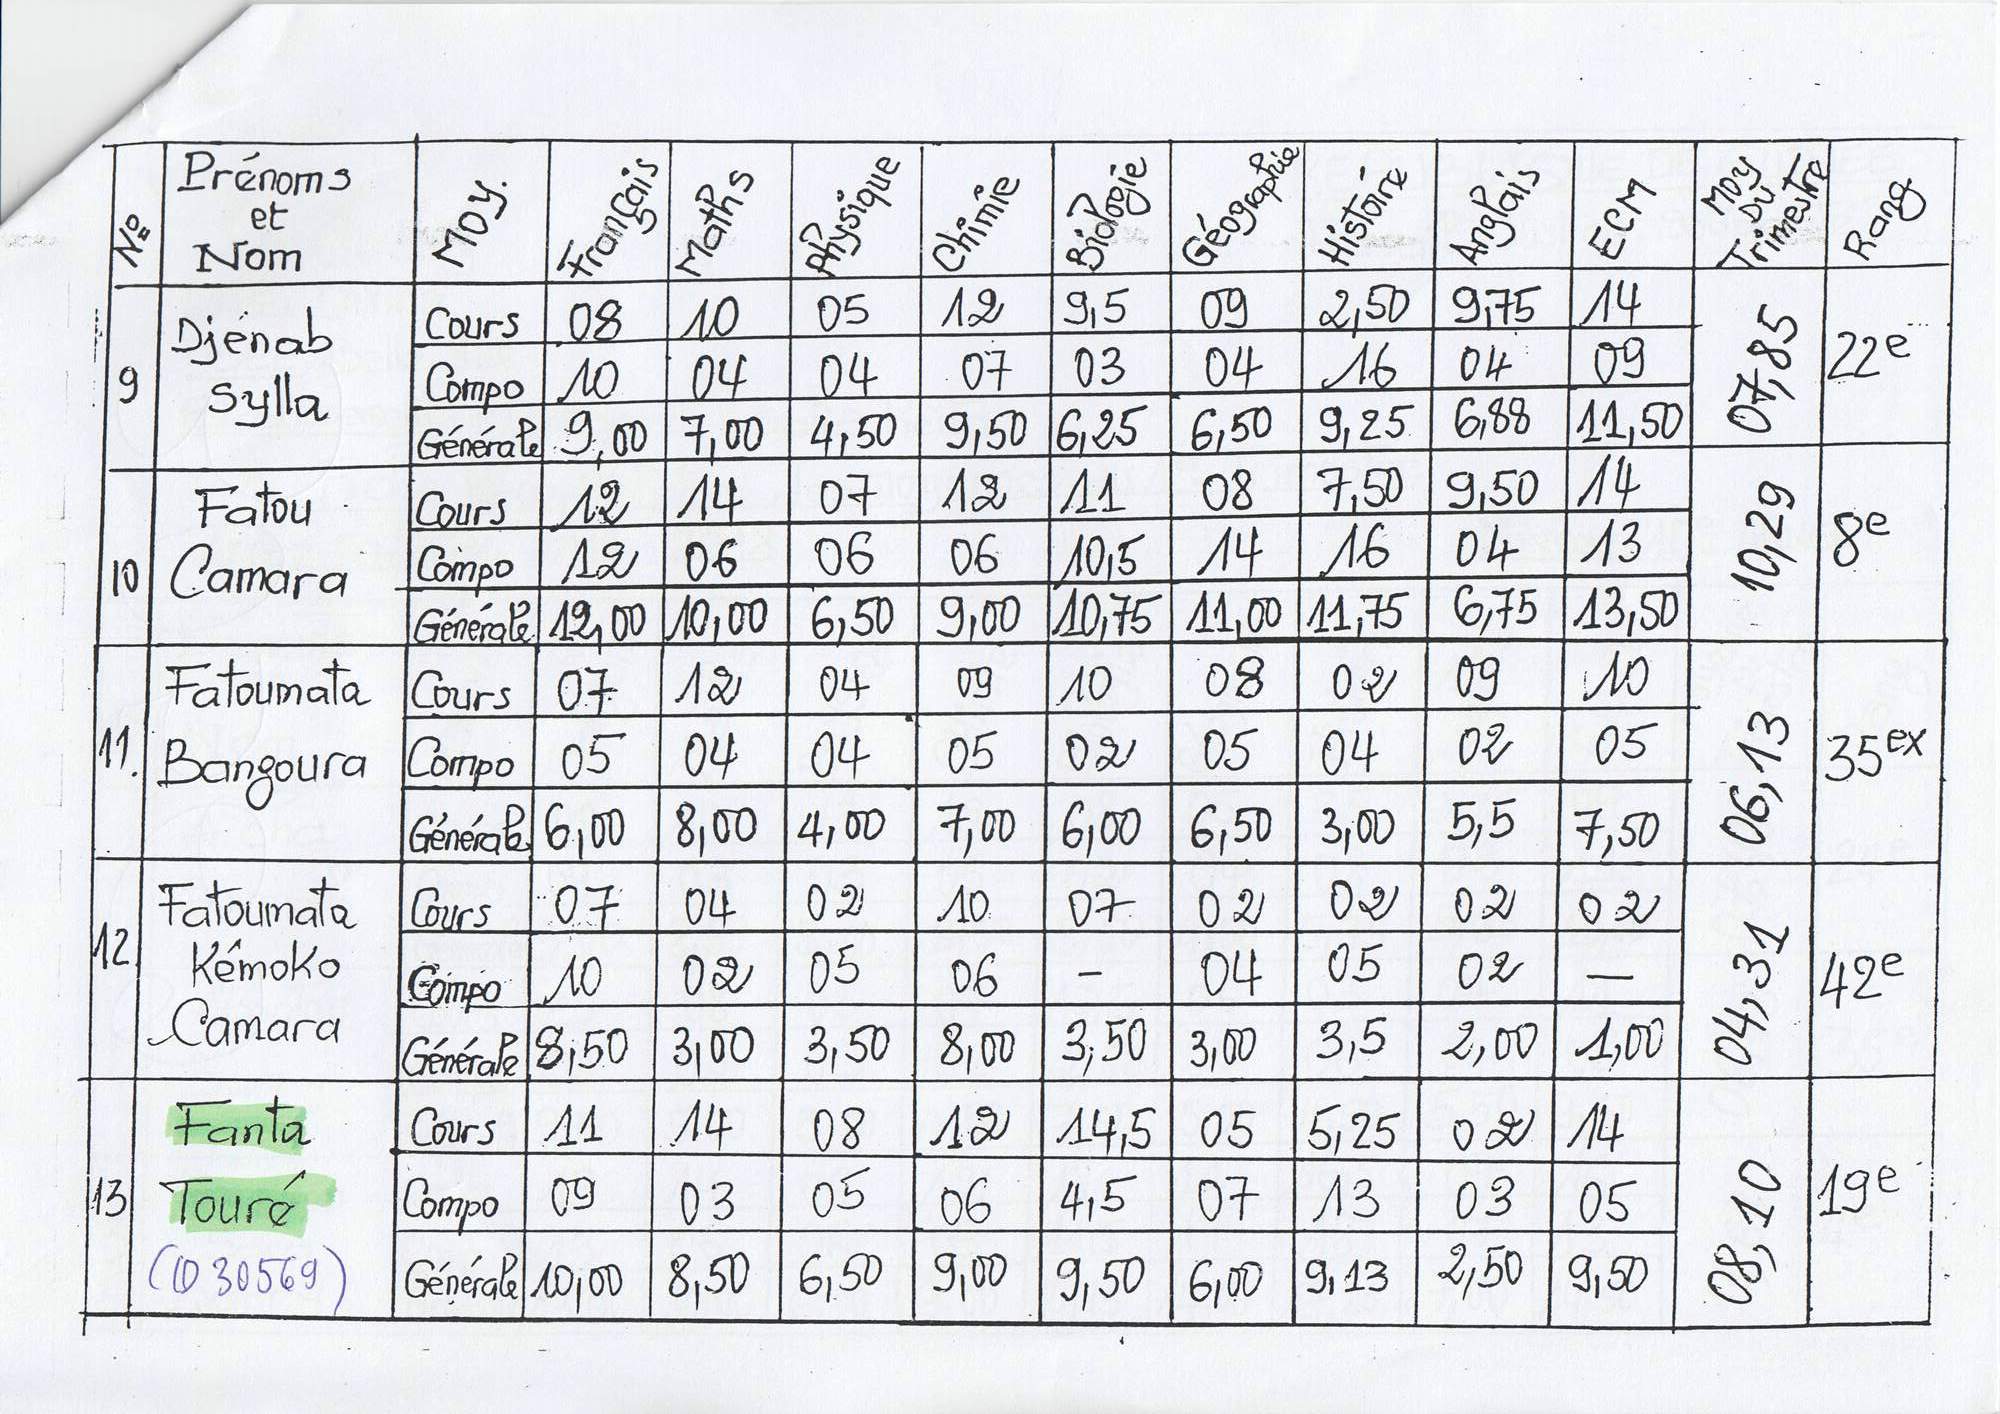 N° Prénoms et Nom Moy. Français Maths Physique Chimie Biologie Géographie Histoire Anglais ECM Moy Du Trimestre Rang
9 Djénab Sylla 07,85 22e
Cours 08 10 05 12 9,5 09 2,50 9,75 14
Compo 10 04 04 07 03 04 16 04 09
Générale 9,00 7,00 4,50 9,50 6,25 6,50 9,25 6,88 11,50
10 Fatou Camara 10,29 8e
Cours 12 14 07 12 11 08 7,50 9,50 14
Compo 12 06 06 06 10,5 14 16 04 13
Générale 12,00 10,00 6,50 9,00 10,75 11,00 11,75 6,75 13,50
11. Fatoumata Bangoura 06,13 35ex
Cours 07 12 04 09 10 08 02 09 10
Compo 05 04 04 05 02 05 04 02 05
Générale 6,00 8,00 4,00 7,00 6,00 6,50 3,00 5,5 7,50
12 Fatoumata Kémoko Camara 04,31 42e
Cours 07 04 02 10 07 02 02 02 02
Compo 10 02 05 06 - 04 05 02 —
Générale 8,50 3,00 3,50 8,00 3,50 3,00 3,5 2,00 1,00
13 Fanta Touré (ID 30569) 08,10 19e
Cours 11 14 08 12 14,5 05 5,25 02 14
Compo 09 03 05 06 4,5 07 13 03 05
Générale 10,00 8,50 6,50 9,00 9,50 6,00 9,13 2,50 9,50